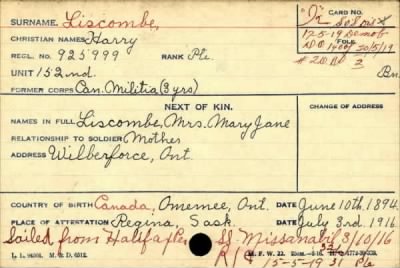 SURNAME. Liscombe,
CHRISTIAN NAMES Harry
REGL. NO. 925999 RANK Pte.
UNIT 152nd.
FORMER CORPS Can. Militia (3 yrs)
CARD NO.
"K"
17-5-19 Demob
FOLIO.
30/5/19
Bn.
NEXT OF KIN.
CHANGE OF ADDRESS
NAMES IN FULL Liscombe, Mrs. Mary Jane
RELATIONSHIP TO SOLDIER Mother
ADDRESS Wilberforce, Ont.
COUNTRY OF BIRTH Canada, Omemee, Ont. DATE June 10th. 1894
PLACE OF ATTESTATION Regina, Sask. DATE July 3rd. 1916
Sailed from Halifax per SS Missanabie 3/10/16
M. F. W. 22.
R/C 15-5-19 31 Pte